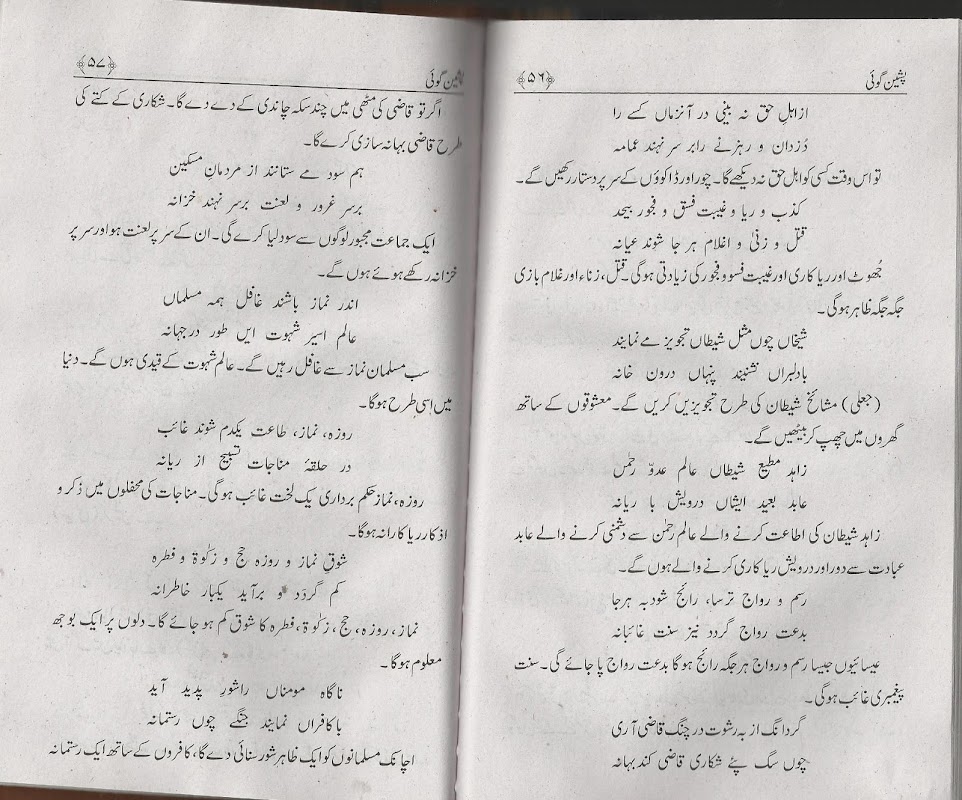 پشین گوئی ﴿۵۶﴾
از اہلِ حق نہ بینی در آنزماں کسے را
دُزدان و رہزنے را بر سر نہند عمامہ
تو اس وقت کسی کو اہل حق نہ دیکھے گا۔ چور اور ڈاکوؤں کے سر پر دستار رکھیں گے۔
کذب و ریا و غیبت فسق و فجور بیحد
قتل و زنیٰ و اغلام ہر جا شوند عیانہ
جُھوٹ اور ریا کاری اور غیبت فسو و فجور کی زیادتی ہوگی۔ قتل، زناء اور غلام بازی
جگہ جگہ ظاہر ہوگی۔
شیخاں چوں مثل شیطاں تجویز مے نمایند
بادلبراں نشنیند پنہاں درون خانہ
(جعلی) مشائخ شیطان کی طرح تجویزیں کریں گے۔ معشوقوں کے ساتھ
گھروں میں چھپ کر بیٹھیں گے۔
زاہد مطیع شیطاں عالم عدوّ رحمٰن
عابد بعید ایشاں درویش با ریانہ
زاہد شیطان کی اطاعت کرنے والے عالم رحمٰن سے دشمنی کرنے والے عابد
عبادت سے دور اور درویش ریا کاری کرنے والے ہوں گے۔
رسم و رواج ترسا، رائج شود بہ ہرجا
بدعت رواج گردد نیز سنت غائبانہ
عیسائیوں جیسا رسم و رواج ہر جگہ رائج ہوگا بدعت رواج پا جائے گی۔ سنت
پیغمبری غائب ہوگی۔
گردانگ از بہ رشوت در چنگ قاضی آری
چوں سگ پئے شکاری قاضی کند بہانہ
پشین گوئی ﴿۵۷﴾
اگر تو قاضی کی مٹھی میں چند سکہ چاندی کے دے دے گا۔ شکاری کے کتے کی
طرح قاضی بہانہ سازی کرے گا۔
ہم سود مے ستانند از مردمان مسکین
برسر غرور و لعنت برسر نہند خزانہ
ایک جماعت مجبور لوگوں سے سود لیا کرے گی۔ ان کے سر پر لعنت ہو اور سر پر
خزانہ رکھے ہوئے ہوں گے۔
اندر نماز باشند غافل ہمہ مسلماں
عالم اسیر شہوت ایں طور در جہانہ
سب مسلمان نماز سے غافل رہیں گے۔ عالم شہوت کے قیدی ہوں گے۔ دنیا
میں اسی طرح ہوگا۔
روزہ، نماز، طاعت یکدم شوند غائب
در حلقۂ مناجات تسبیح از ریانہ
روزہ، نماز حکم برداری یک لخت غائب ہوگی۔ مناجات کی محفلوں میں ذکر و
اذکار ریا کارانہ ہوگا۔
شوق نماز و روزہ حج و زکوٰۃ و فطرہ
کم گردد و برآید یکبار خاطرانہ
نماز، روزہ، حج، زکوٰۃ، فطرہ کا شوق کم ہو جائے گا۔ دلوں پر ایک بوجھ
معلوم ہوگا۔
ناگاہ مومناں را شور پدید آید
باکافراں نمایند جنگے چوں رستمانہ
اچانک مسلمانوں کو ایک ظاہر شور سنائی دے گا، کافروں کے ساتھ ایک رستمانہ